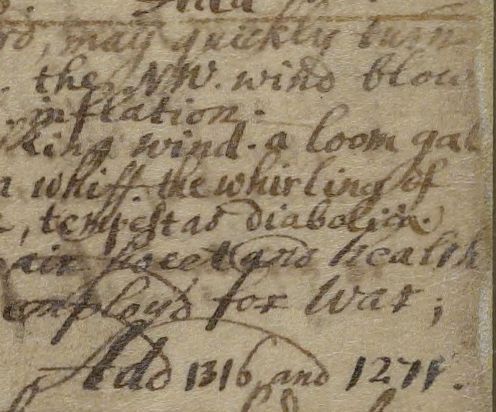 Add
may quickly turn
the NW. wind blow
inflation.
king wind. a loom gal
whiff. the whirling of
tempestas diabolica.
air sweet and health
employd for War;
Add 1316, and 1271.